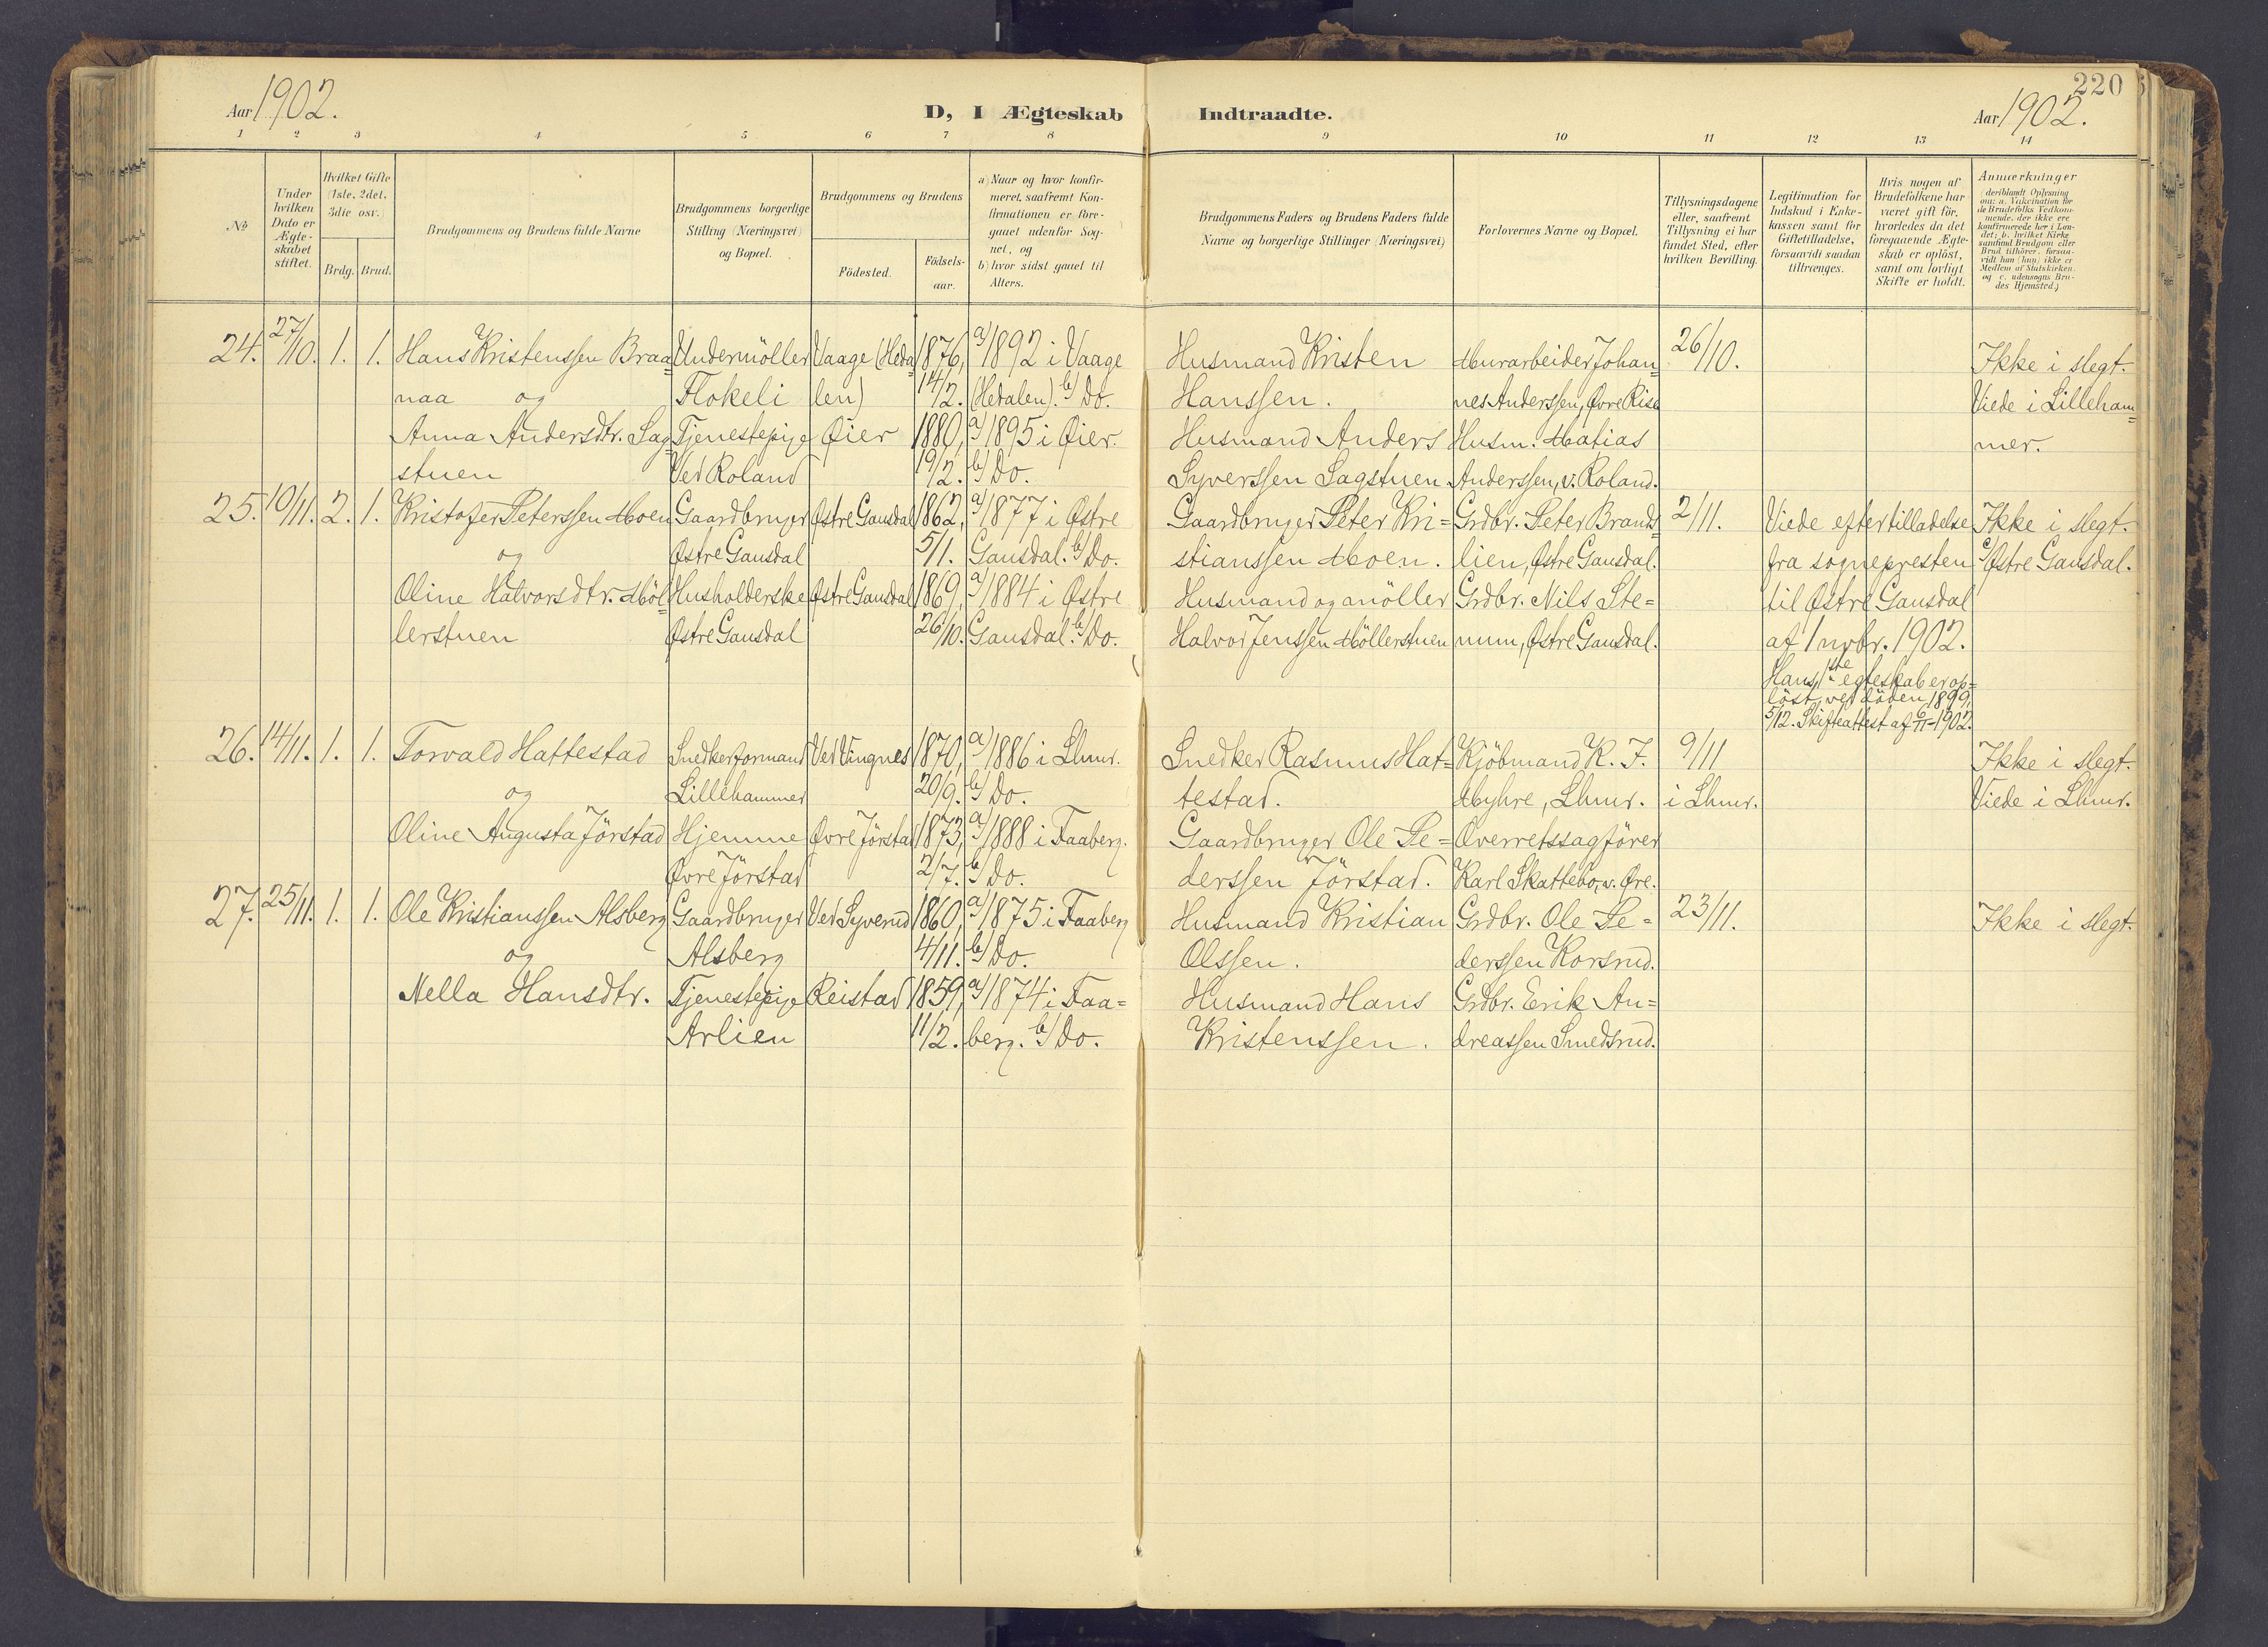 220
Aar 1902.
D, I Ægteskab Indtraadte.
Aar 1902.
1 2 3 4 5 6 7 8 9 10 11 12 13 14
No
Under hvilken Dato er Ægteskabet stiftet.
Hvilket Gifte (1ste, 2det, 3die osv.)
Brdg. Brud.
Brudgommens og Brudens fulde Navne
Brudgommens borgerlige Stilling (Næringsvei) og Bopæl.
Brudgommens og Brudens
Födested.
Födsels-aar.
a) Naar og hvor konfirmeret, saafremt Konfirmationen er foregaaet udenfor Sognet, og
b) hvor sidst gaaet til Alters.
Brudgommens Faders og Brudens Faders fulde Navne og borgerlige Stillinger (Næringsvei)
Forlovernes Navne og Bopæl.
Tillysningsdagene eller, saafremt Tillysning ei har fundet Sted, efter hvilken Bevilling.
Legitimation for Indskud i Enkekassen samt for Giftetilladelse, forsaavidt saadan tiltrænges.
Hvis nogen af Brudefolkene har været gift för, hvorledes da det foregaaende Ægteskab er oplöst, samt om lovligt Skifte er holdt.
Anmærkninger (deriblandt Oplysning om: a. Vakcination för de Brudefolks Vedkommende, der ikke ere konfirmerede her i Landet; b. hvilket Kirkesamfund Brudgom eller Brud tilhörer, forsaavidt han (hun) ikke er Medlem af Statskirken, og c. udensogns Brudes Hjemsted.)
24. 27/10. 1. 1. Hans Kristenssen Braa= Undermöller Vaage (Heda= 1876, a) 1892 i Vaage Husmand Kristen Murarbeider Johan= 26/10. Ikke i slegt.
naa og Flokeli len) 14/2. (Hedalen). b) Do. Hanssen. nes Anderssen, Øvre Rise Viede i Lilleham=
Anna Andersdtr. Sag= Tjenestepige Øier 1880, a) 1895 i Øier. Husmand Anders Husm. Matias mer.
stuen Ved Roland 19/2. b) Do. Syverssen Sagstuen Anderssen, v. Roland.
25. 10/11. 2. 1. Kristofer Peterssen Moen Gaardbruger Østre Gausdal 1862, a) 1877 i Østre Gaardbruger Peter Kri= Grdbr. Peter Brands= 2/11. Viede efter tilladelse Ikke i slegt.
og Østre Gausdal 5/1. Gausdal. b) Do. stianssen Moen. lien, Østre Gausdal. fra sognepresten c) Østre Gausdal.
Oline Halvorsdtr. Möl= Husholderske Østre Gausdal 1869, a) 1884 i Østre Husmand og möller Grdbr. Nils Ste= til Østre Gausdal
lerstuen Østre Gausdal 26/10. Gausdal. b) Do. Halvor Jenssen Möllerstuen num, Østre Gausdal. af 1 novbr. 1902.
Hans 1ste egteskab er op=
löst ved döden 1899,
5/12. Skifteattest af 6/11-1902.
26. 14/11. 1. 1. Torvald Hattestad Snedkerformand Ved Vingnes 1870, a) 1886 i Lhmr. Snedker Rasmus Hat= Kjöbmand K. J. 9/11 Ikke i slegt.
og Lillehammer 20/9. b) Do. testad. Myhre, Lhmr. i Lhmr. Viede i Lhmr.
Oline Augusta Jörstad Hjemme Øvre Jörstad 1873, a) 1888 i Faaberg. Gaardbruger Ole Pe= Overretssagförer
Øvre Jörstad 2/7. b) Do. derssen Jörstad. Karl Skattebo, v. Øre.
27. 25/11. 1. 1. Ole Kristianssen Alsberg Gaardbruger Ved Syverud 1860, a) 1875 i Faaberg Husmand Kristian Grdbr. Ole Pe= 23/11. Ikke i slegt.
og Alsberg 4/11. b) Do. Olssen. derssen Korsrud.
Nella Hansdtr. Tjenestepige Reistad 1859, a) 1874 i Faa= Husmand Hans Grdbr. Erik An=
Arlien 11/2. berg. b) Do. Kristenssen. dreassen Smedsrud.